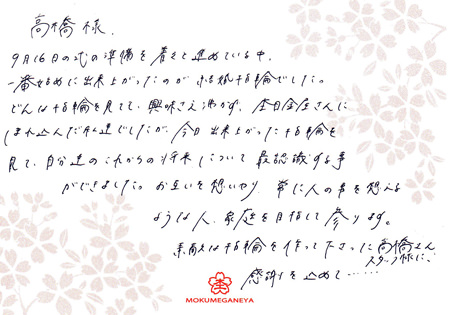 高橋 様.
9月16日の式の準備を着々と進めている中、
一番始めに出来上がったのが結婚指輪でした。
どんな指輪を見ても、興味さえ沸かず、杢目金屋さんに
ほれ込んだ私達でしたが、今日出来上がった指輪を
見て、自分達のこれからの将来について 最認識する事
ができました。お互いを想いやり 常に人の事を想える
ような人、家庭を目指して参ります。
素敵な指輪を作って下さった高橋さん
スタッフ様に、
感謝を込めて……
MOKUMEGANEYA